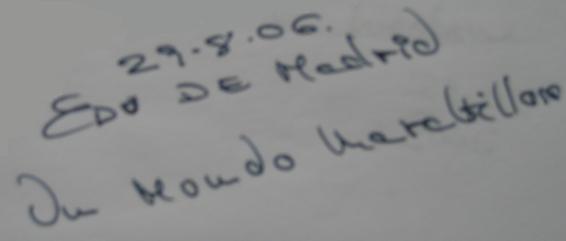 29.8.06.
EDU DE Madrid
Un Mondo Maravilloso